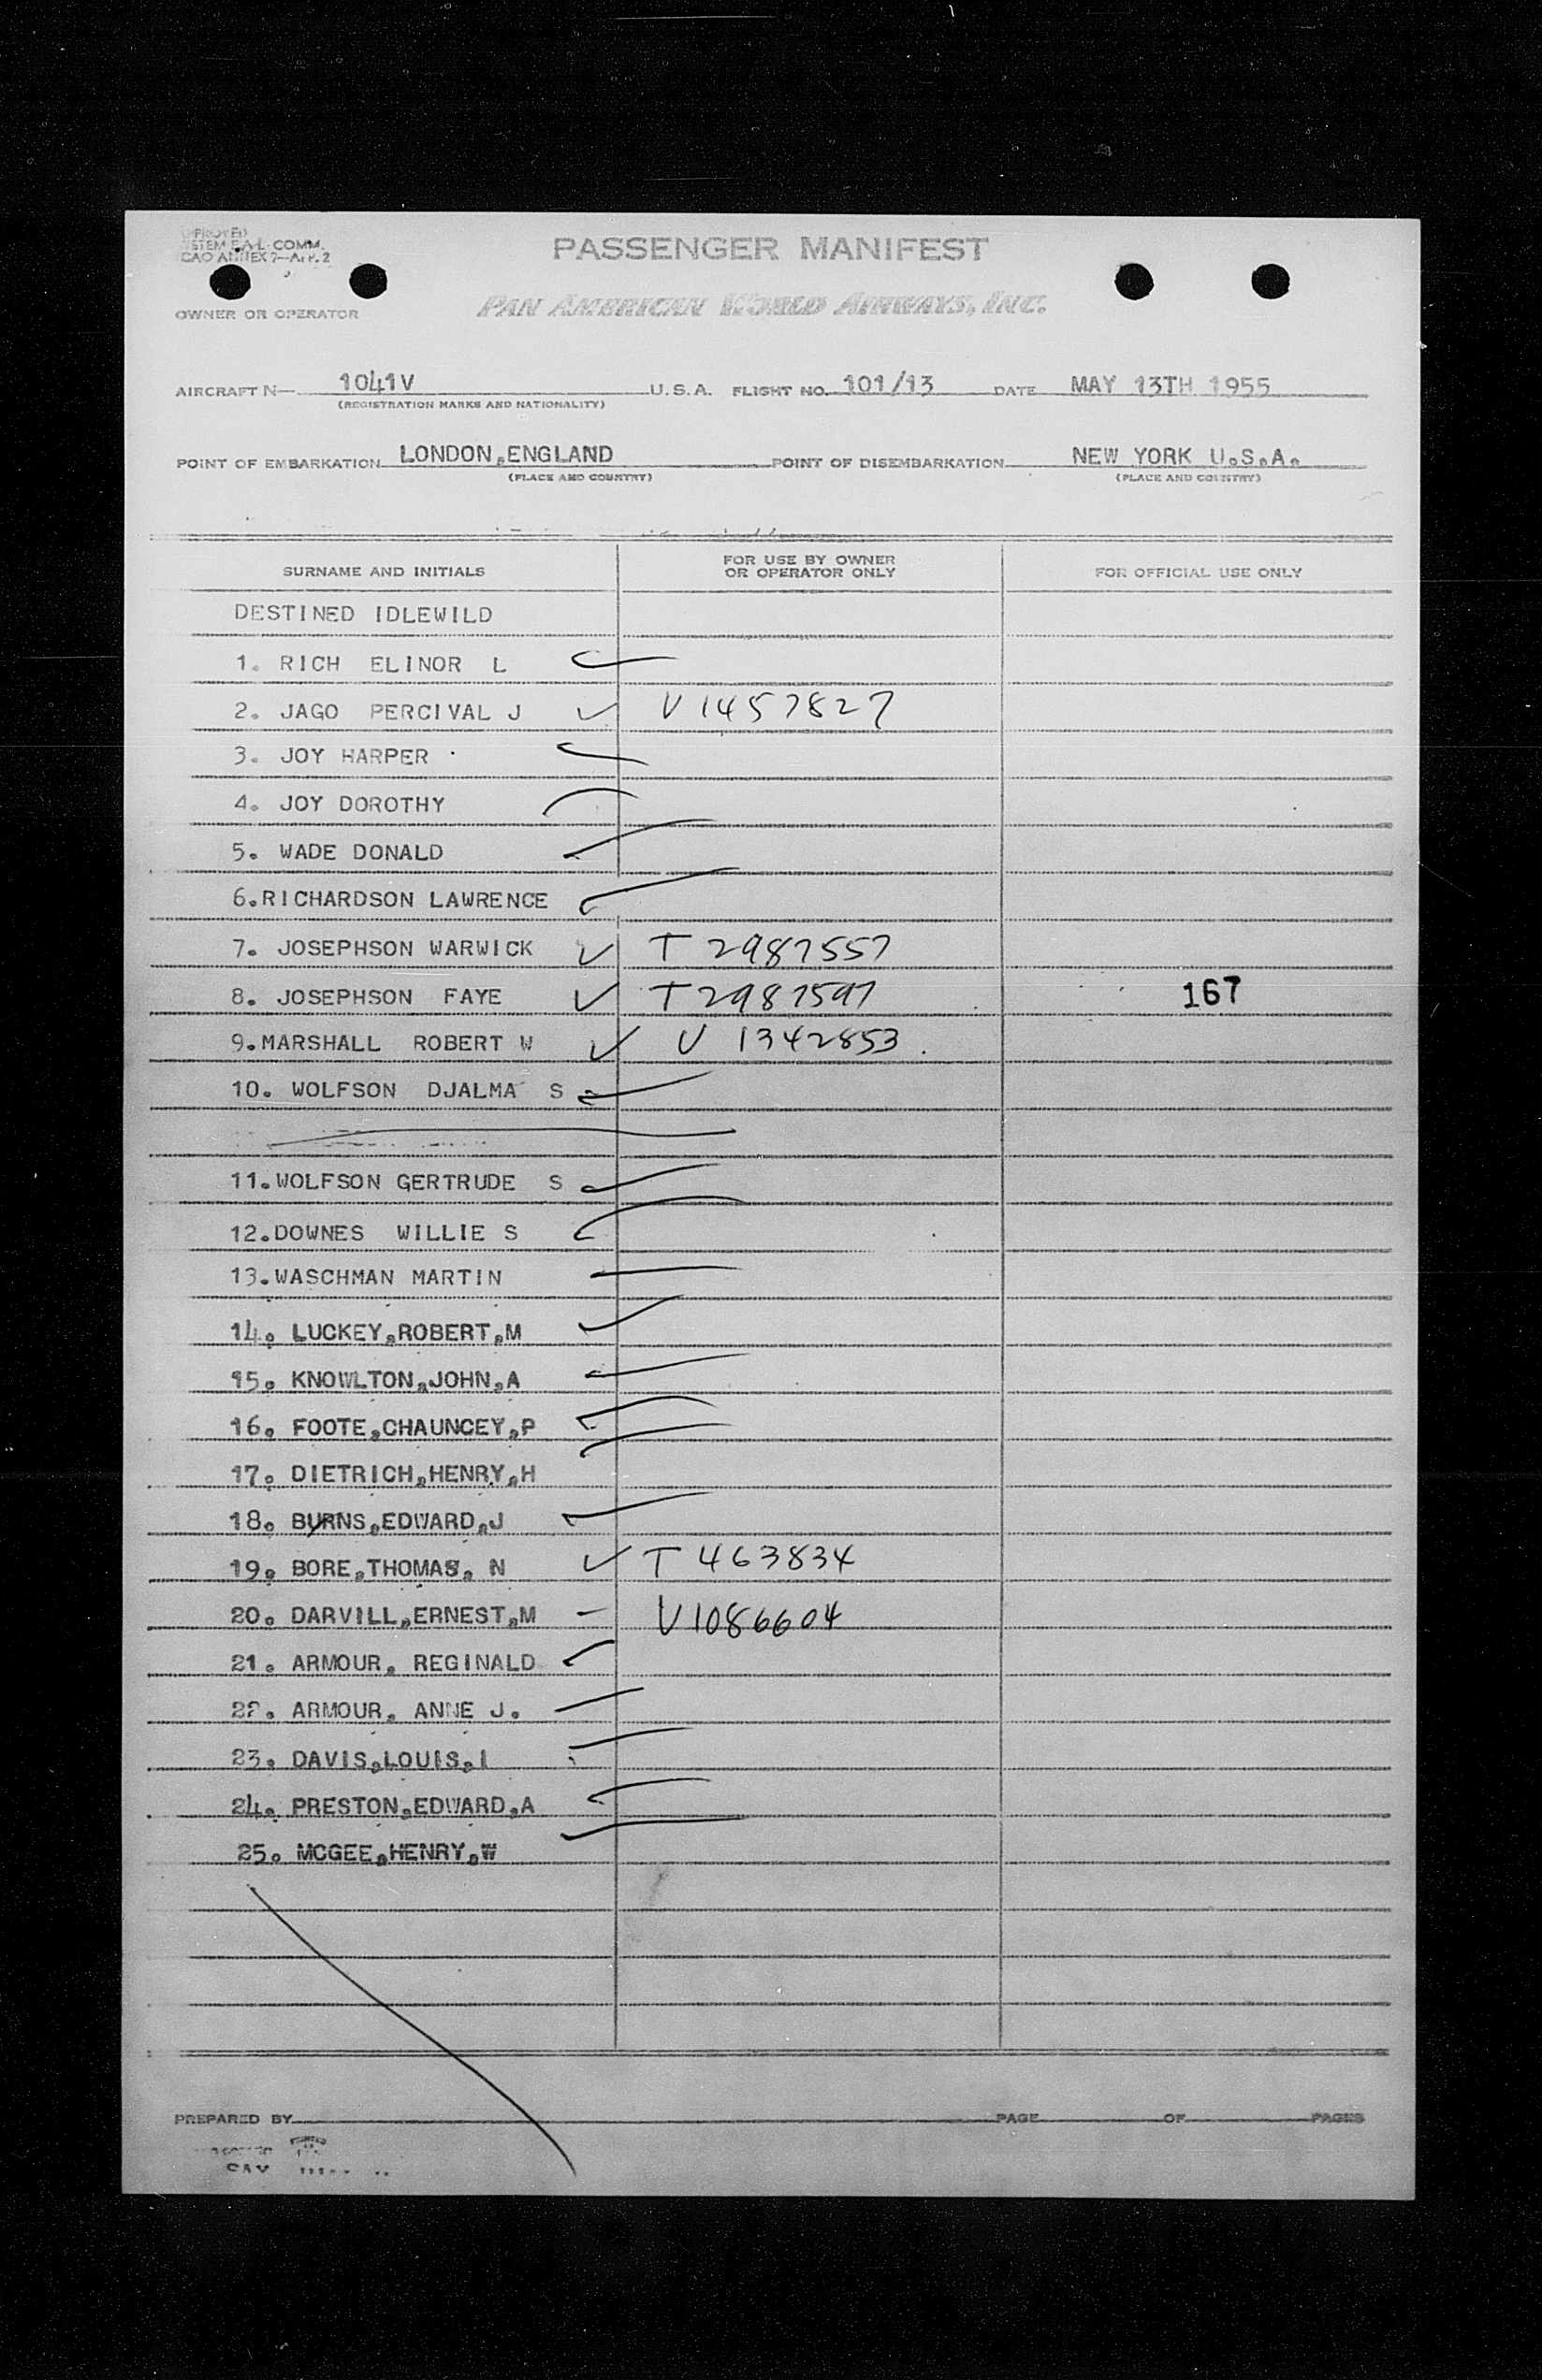 PASSENGER MANIFEST
COMM.
OWNER OR OPERATOR
PAN AMERICAN WORLD AIRWAYS, INC.
AIRCRAFT N— 1041V U.S.A. FLIGHT NO. 101/13 DATE MAY 13TH 1955
(REGISTRATION MARKS AND NATIONALITY)
POINT OF EMBARKATION LONDON,ENGLAND POINT OF DISEMBARKATION NEW YORK U.S.A.
(PLACE AND COUNTRY) (PLACE AND COUNTRY)
SURNAME AND INITIALS FOR USE BY OWNER OR OPERATOR ONLY FOR OFFICIAL USE ONLY
DESTINED IDLEWILD
1. RICH ELINOR L
2. JAGO PERCIVAL J V1457827
3. JOY HARPER
4. JOY DOROTHY
5. WADE DONALD
6.RICHARDSON LAWRENCE
7. JOSEPHSON WARWICK T 2987557
8. JOSEPHSON FAYE T2987597 167
9.MARSHALL ROBERT W V 1342853
10. WOLFSON DJALMA S
11.WOLFSON GERTRUDE S
12.DOWNES WILLIE S
13.WASCHMAN MARTIN
14. LUCKEY,ROBERT,M
15. KNOWLTON,JOHN,A
16. FOOTE,CHAUNCEY,P
17. DIETRICH,HENRY,H
18. BURNS,EDWARD,J
19. BORE,THOMAS, N T 463834
20. DARVILL,ERNEST,M V1086604
21. ARMOUR, REGINALD
22. ARMOUR, ANNE J.
23. DAVIS,LOUIS,I
24. PRESTON,EDWARD,A
25. MCGEE,HENRY,W
PREPARED BY PAGE OF PAGES